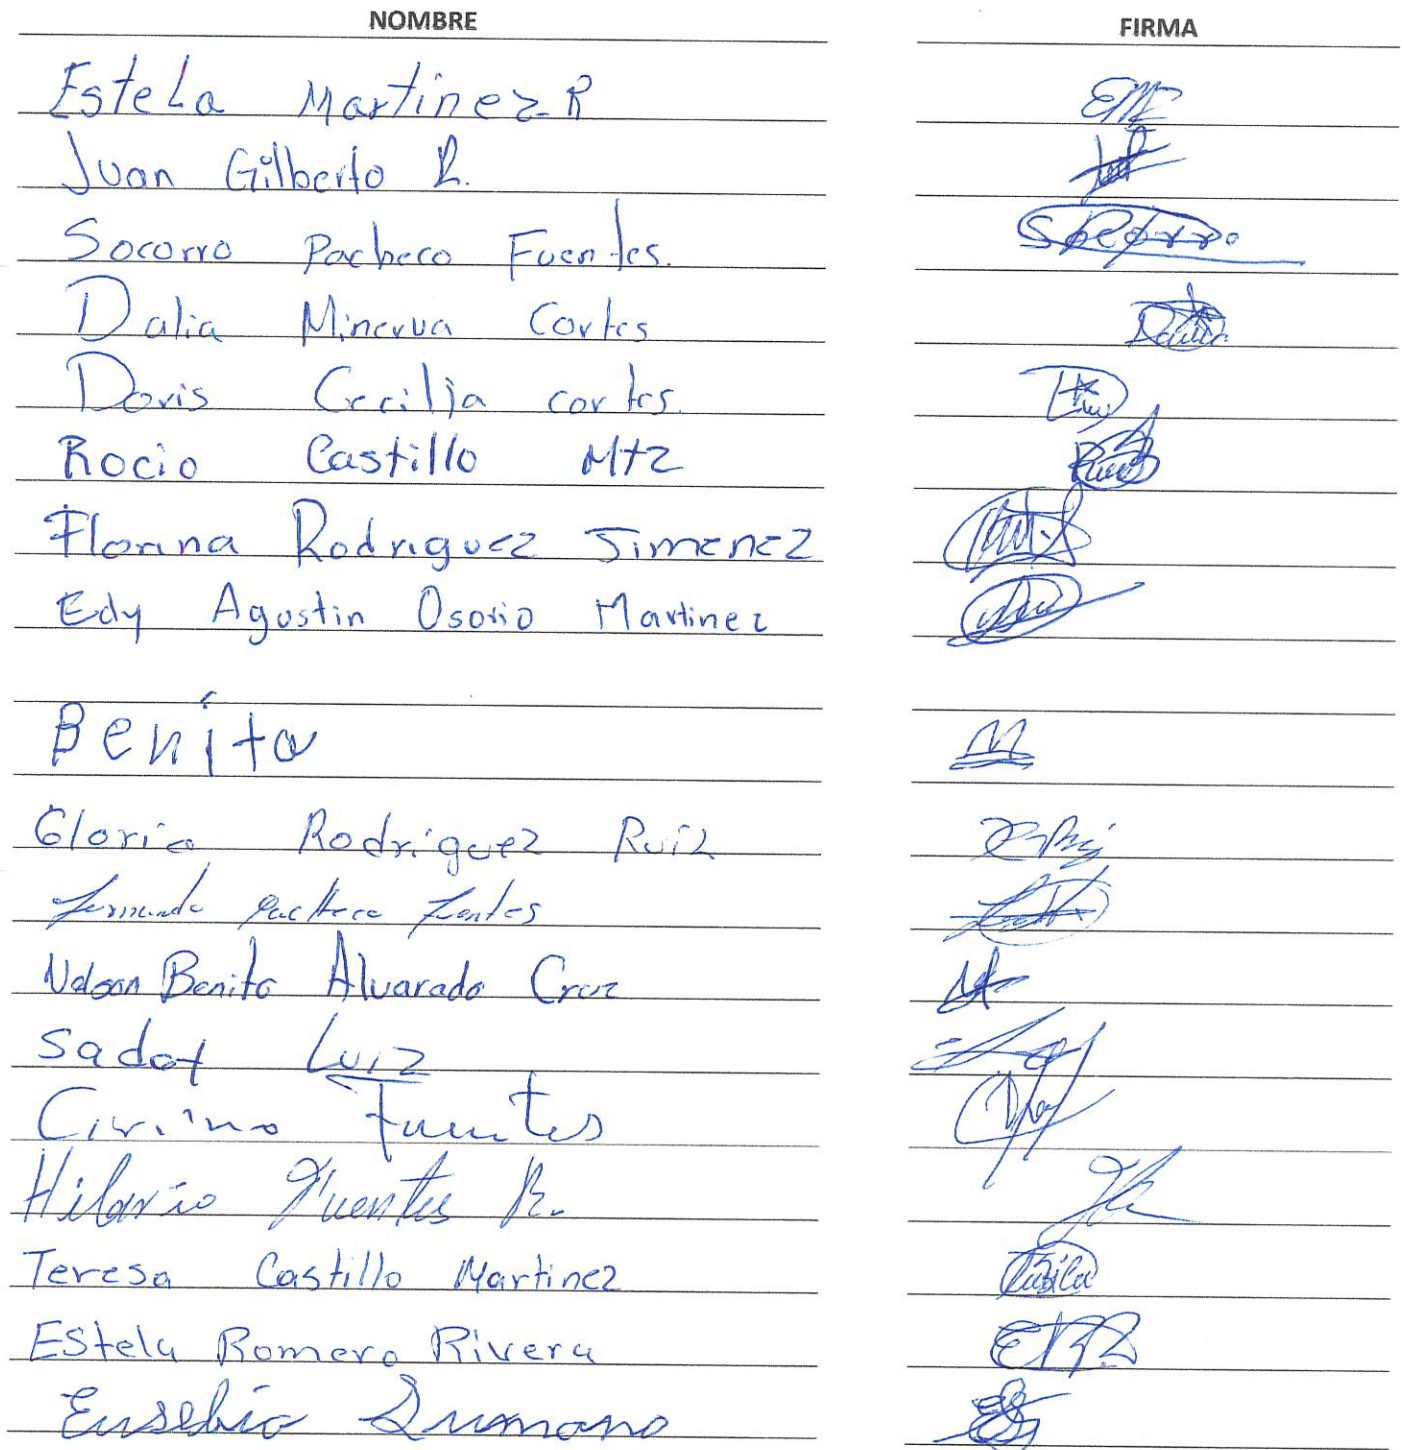 NOMBRE FIRMA
Estela Martinez R EMR
Juan Gilberto R.
Socorro Pacheco Fuentes. Socorro
Dalia Minerva Cortes Dalia
Doris Cecilia cortes.
Rocio Castillo Mtz
Florina Rodriguez Jimenez
Edy Agustin Osorio Martinez
Benito
Gloria Rodriguez Ruiz
Fernando Pacheco Fuentes
Nelson Benito Alvarado Cruz
Sadot Luiz
Cirino Fuentes
Hilario Fuentes R.
Teresa Castillo Martinez
EStela Romero Rivera ERR
Eusebio